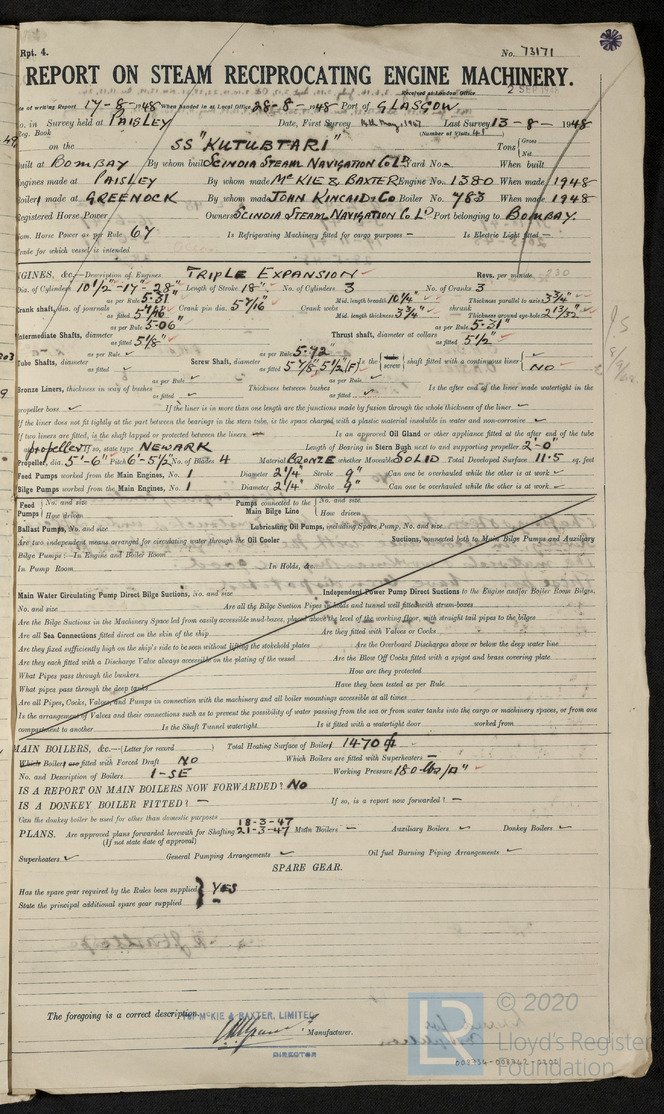 Rpt. 4.
No. 73171
REPORT ON STEAM RECIPROCATING ENGINE MACHINERY.
Received at London Office 2 SEP 1948
of writing Report 17-8-1948 When handed in at Local Office 28-8-1948 Port of GLASGOW
No. in Survey held at PAISLEY Date, First Survey Last Survey 13-8-1948
Reg. Book (Number of Visits 41)
on the SS "KUTUBTARI" Tons { Gross Net
Built at BOMBAY By whom built SCINDIA STEAM NAVIGATION Co LD Yard No. - When built
Engines made at PAISLEY By whom made McKIE & BAXTER Engine No. 1380 When made 1948
Boiler made at GREENOCK By whom made JOHN KINCAID & Co Boiler No. 783 When made 1948
Registered Horse Power Owners SCINDIA STEAM NAVIGATION Co LD Port belonging to BOMBAY.
Nom. Horse Power as per Rule 67 Is Refrigerating Machinery fitted for cargo purposes - Is Electric Light fitted -
Trade for which vessel is intended
ENGINES, &c.—Description of Engines TRIPLE EXPANSION Revs. per minute
Dia. of Cylinders 10 1/2"-17"-28" Length of Stroke 18" No. of Cylinders 3 No. of Cranks 3
Crank shaft, dia. of journals as per Rule 5.31" as fitted Crank pin dia. 5 7/16" Crank webs Mid. length breadth 10 1/4" Mid. length thickness 3 3/4" shrunk Thickness parallel to axis 3 3/4" Thickness around eye-hole
Intermediate Shafts, diameter as per Rule 5.06" as fitted 5 1/8" Thrust shaft, diameter at collars as per Rule 5.31" as fitted 5 1/2"
Tube Shafts, diameter as per Rule as fitted Screw Shaft, diameter as per Rule 5.92" as fitted 5 7/8", 5 1/2 (F) Is the screw shaft fitted with a continuous liner NO
Bronze Liners, thickness in way of bushes as per Rule as fitted Thickness between bushes as per Rule as fitted Is the after end of the liner made watertight in the
propeller boss If the liner is in more than one length are the junctions made by fusion through the whole thickness of the liner
If the liner does not fit tightly at the part between the bearings in the stern tube, is the space charged with a plastic material insoluble in water and non-corrosive
If two liners are fitted, is the shaft lapped or protected between the liners - Is an approved Oil Gland or other appliance fitted at the after end of the tube
propeller If so, state type NEWARK Length of Bearing in Stern Bush next to and supporting propeller 2'-0"
Propeller, dia. 5'-6" Pitch 6'-5 1/2" No. of Blades 4 Material BRONZE whether Moveable SOLID Total Developed Surface 11.5 sq. feet
Feed Pumps worked from the Main Engines, No. 1 Diameter 2 1/4" Stroke 9" Can one be overhauled while the other is at work
Bilge Pumps worked from the Main Engines, No. 1 Diameter 2 1/4" Stroke 9" Can one be overhauled while the other is at work
Feed Pumps { No. and size How driven Pumps connected to the Main Bilge Line { No. and size How driven
Ballast Pumps, No. and size Lubricating Oil Pumps, including Spare Pump, No. and size
Are two independent means arranged for circulating water through the Oil Cooler Suctions, connected both to Main Bilge Pumps and Auxiliary
Bilge Pumps:—In Engine and Boiler Room
In Pump Room In Holds, &c.
Main Water Circulating Pump Direct Bilge Suctions, No. and size Independent Power Pump Direct Suctions to the Engine and/or Boiler Room Bilges,
No. and size Are all the Bilge Suction Pipes in holds and tunnel well fitted with strum-boxes
Are the Bilge Suctions in the Machinery Space led from easily accessible mud-boxes, placed above the level of the working floor, with straight tail pipes to the bilges
Are all Sea Connections fitted direct on the skin of the ship Are they fitted with Valves or Cocks
Are they fixed sufficiently high on the ship's side to be seen without lifting the stokehold plates Are the Overboard Discharges above or below the deep water line
Are they each fitted with a Discharge Valve always accessible on the plating of the vessel Are the Blow Off Cocks fitted with a spigot and brass covering plate
What Pipes pass through the bunkers How are they protected
What pipes pass through the deep tanks Have they been tested as per Rule
Are all Pipes, Cocks, Valves, and Pumps in connection with the machinery and all boiler mountings accessible at all times
Is the arrangement of Valves and their connections such as to prevent the possibility of water passing from the sea or from water tanks into the cargo or machinery spaces, or from one
compartment to another Is the Shaft Tunnel watertight Is it fitted with a watertight door worked from
MAIN BOILERS, &c.—(Letter for record ) Total Heating Surface of Boiler 1470
Which Boiler fitted with Forced Draft NO Which Boilers are fitted with Superheaters -
No. and Description of Boilers 1-SE Working Pressure 180 lbs/□"
IS A REPORT ON MAIN BOILERS NOW FORWARDED? NO
IS A DONKEY BOILER FITTED? - If so, is a report now forwarded? -
Can the donkey boiler be used for other than domestic purposes
PLANS. Are approved plans forwarded herewith for Shafting 18-3-47 21-3-47 Main Boilers - Auxiliary Boilers Donkey Boilers
(If not state date of approval)
Superheaters General Pumping Arrangements Oil fuel Burning Piping Arrangements
SPARE GEAR.
Has the spare gear required by the Rules been supplied YES
State the principal additional spare gear supplied -
The foregoing is a correct description
FOR McKIE & BAXTER, LIMITED
Manufacturer.
DIRECTOR
© 2020
LR
Lloyd's Register
Foundation